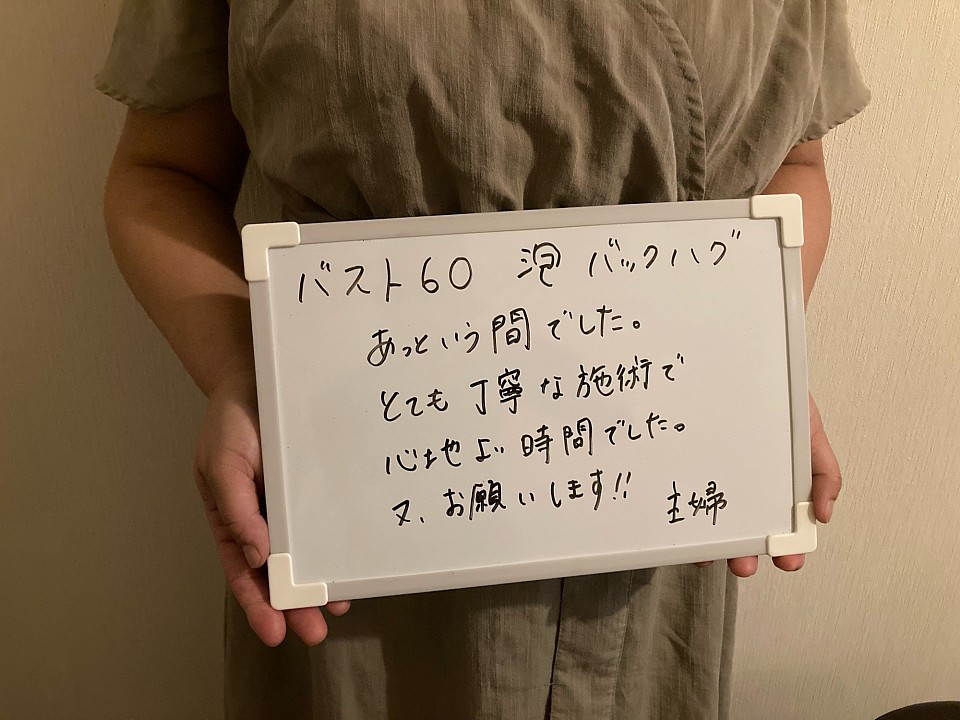 バスト60 泡 バックハグ
あっという間でした。
とても丁寧な施術で
心地よい時間でした。
又、お願いします!!
主婦